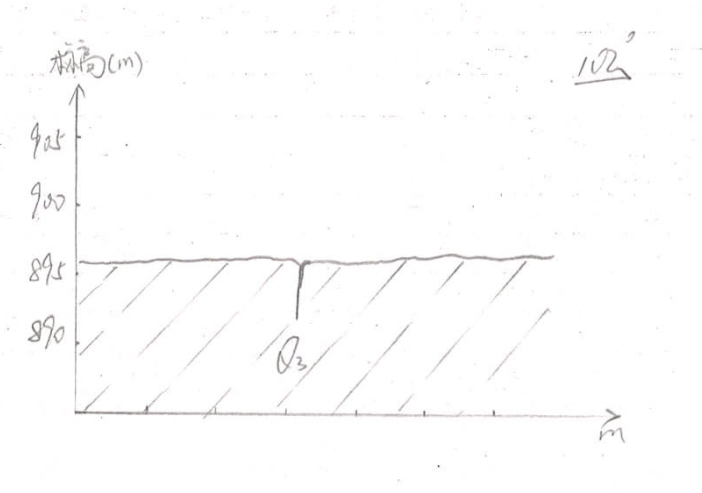 标高(m)
102°
905
900
895
890
Q3
m